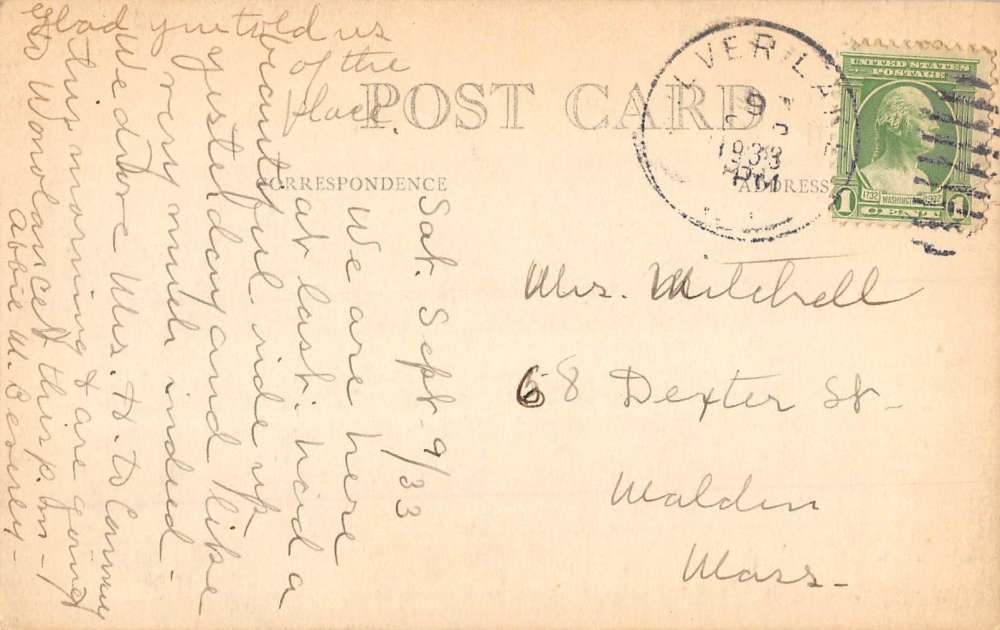 POST CARD
CORRESPONDENCE
ADDRESS
UNITED STATES
POSTAGE
1732 WASHINGTON
1 CENT 1
9
1933
PM
Sat. Sept. 9/33
We are here
at last. had a
beautiful ride up
yesterday and like
very much indeed.
Mrs. H. to
this morning & are going
to this p.m.
Abbie M.
glad you told us
of the
place.
Mrs. Mitchell
68 Dexter St-
Malden
Mass-